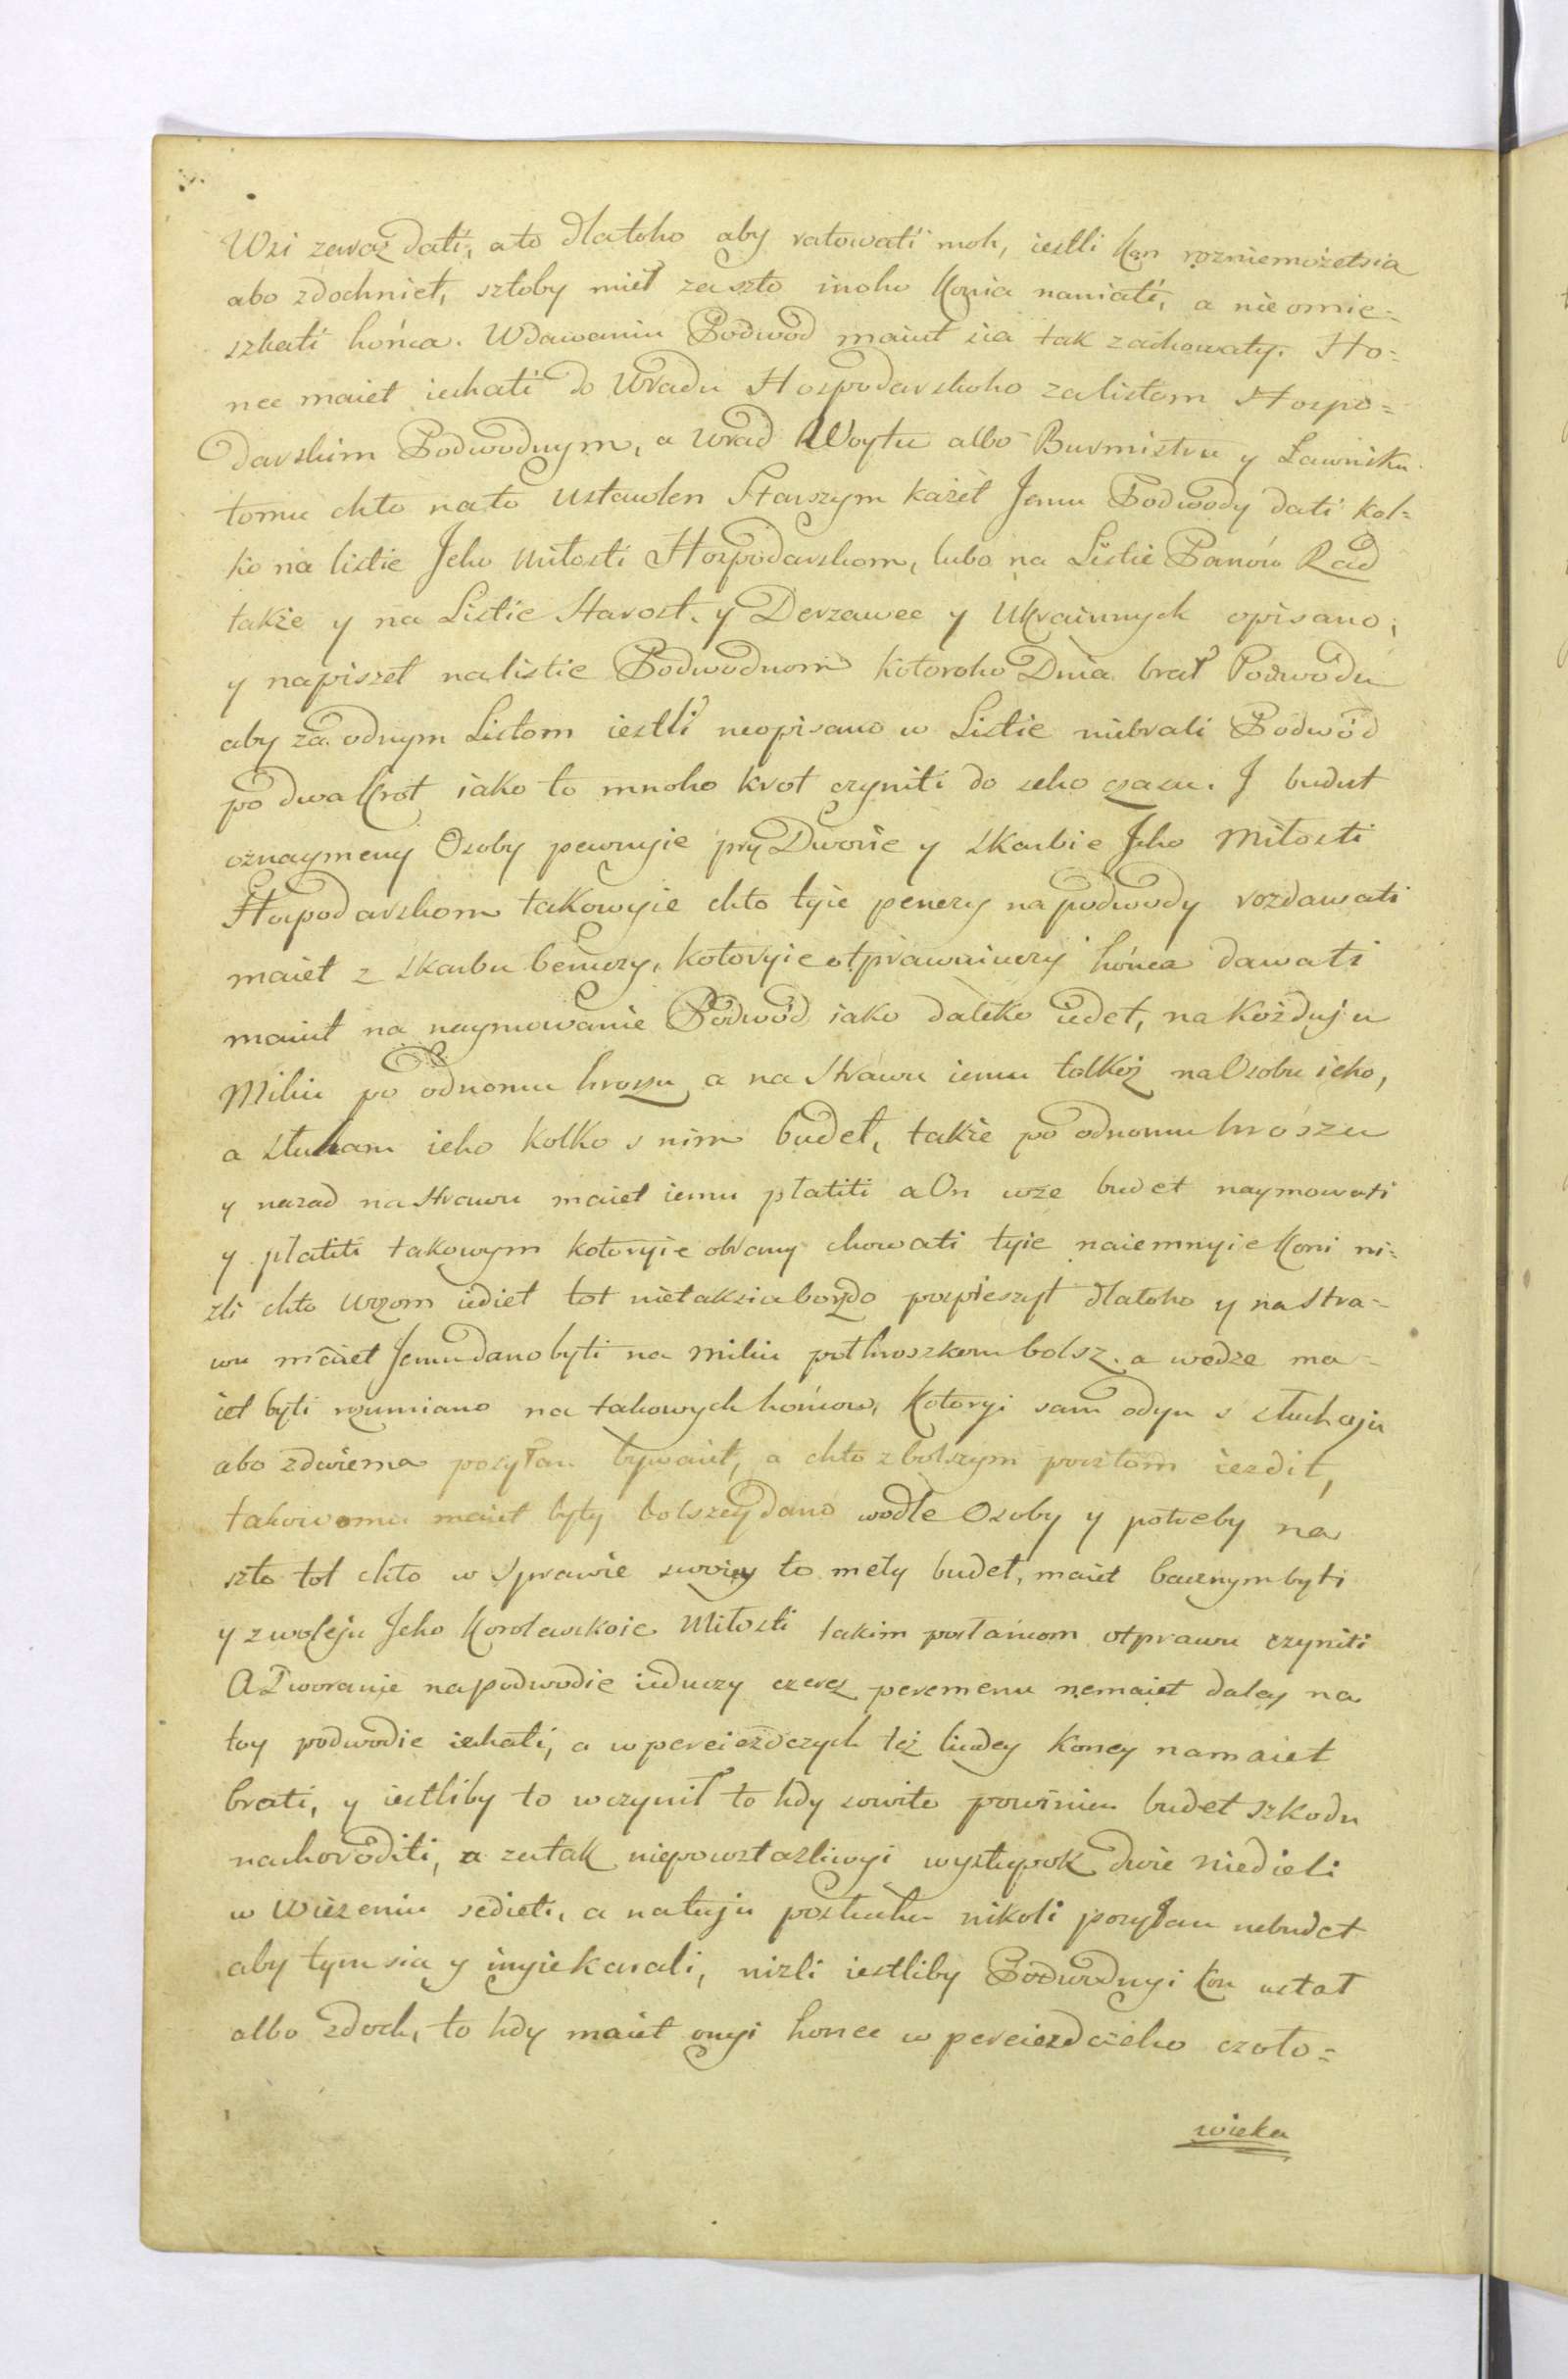 Wsi zaraz dati, a to dlatoho aby ratowati moh, iestli kon rozniemożetsia
abo zdochniet, sztoby miet zaszto inoho konia naniati, a nie omie=
szkati hońca. Wdawaniu Podwod maiut sia tak zachowaty. Ho=
nec maiet iechati do Wradu Hospodarskoho zalistom Hospo=
darskim Podwodnym, a wrad Woytu albo Burmistru y Ławniku
tomu chto nato ustawlen Starszym każet Jemu Podwody dati kol=
ko na listie Jeho miłosti Hospodarskom, lubo na Listie Panów Rad
także y na Listie Starost. y Derzawec y Ukrainnych opisano,
y napiszet nalistie Podwodnom kotoroho Dnia brał Podwodu
aby za odnym Listom iestli neopisano w Listie niebrali Podwód
po dwa krot iako to mnoho krot czyniti do seho czasu. J budut
oznaymeny Osoby pewnyie pry Dworie y Skarbie Jeho Miłosti
Hospodarskom takowyie chto tyie penezy na podwody rozdawati
maiet z skarbu beruczy, kotoryie otprawuiuczy hońca dawati
maiut na naymowanie Podwód iako daleko iedet, na kożduju
Miliu po odnomu hroszu a na Strawu iemu tolkoż na Osobu ieho,
a sluham ieho kolko s nim budet, także po odnomu hroszu
y nazad na strawu maiet iemu płatiti a On uże budet naymowati
y płatiti takowym kotoryie obrany chowati tyie naiemnyie koni ni=
zli chto wozom iediet tot nietaksia borzdo pospieszyt dlatoho y na Stra=
wu maiet Jemu dano byti na miliu pothroszkom bolsz. a wedże ma=
iet byti rozumiano na takowych hońcow, kotoryi sam odyn s słuhoju
abo zdwiema posyłan bywaiet, a chto zbolszym pocztom iezdit,
takowomu maiet byty bolszey dano wodle Osoby y potreby na
szto tot chto w sprawie swoiey to mety budet, maiet bacznym byti
y zwoleju Jeho Korolewskoie Miłosti takim posłańcom otprawu czyniti
A Dworanie na podwodie ieduczy czerez peremenu nemaiet daley na
toy podwodie iechati, a w pereiezdczych też liudey koney nemaiet
brati, y iestliby to wczynił to hdy sowito powinien budet szkodu
nahoroditi, a zatak niepowstazliwyi wystupok dwie niedieli
w wiezeniu sedieti, a natuju posłuhu nikoli posyłan nebudet
aby tym sia y inyie karali, nizli iestliby Podwodnyi kon ustał
albo zdoch, to hdy maiet onyi honec w pereiezdczoho czoło=
wieka